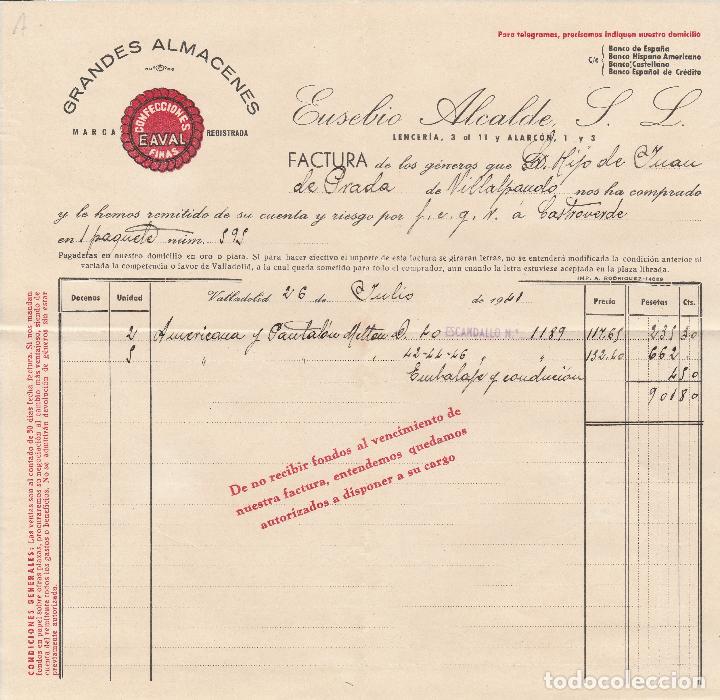 A
Para telegramas, precisamos indiquen nuestro domicilio
GRANDES ALMACENES
MARCA REGISTRADA
CONFECCIONES
EAVAL
FINAS
C/c
Banco de España
Banco Hispano Americano
Banco Castellano
Banco Español de Crédito
Eusebio Alcalde, S. L.
LENCERÍA, 3 al 11 y ALARCÓN, 1 y 3
FACTURA de los géneros que D. Hijo de Juan
de Prada de Villalpando nos ha comprado
y le hemos remitido de su cuenta y riesgo por f. c. g. V. á Castroverde
en 1 paquete núm. 595
Pagaderas en nuestro domicilio en oro o plata. Si para hacer efectivo el importe de esta factura se giraran letras, no se entenderá modificada la condición anterior ni
variada la competencia o favor de Valladolid, a la cual queda sometido para todo el comprador, aun cuando la letra estuviese aceptada en la plaza librada.
IMP. A. RODRIGUEZ-14089
Docenas Unidad Valladolid 26 de Julio de 1941 Precio Pesetas Cts.
2 Americana y Pantalón Milton D. 40 ESCANDALLO N.º 1189 117.65 235 30
5 " " " " 42-44-46 " " 132.40 662
Embalaje y condución 4 50
901 80
De no recibir fondos al vencimiento de
nuestra factura, entendemos quedamos
autorizados a disponer a su cargo
CONDICIONES GENERALES: Las ventas son al contado de 30 días fecha factura. Si nos mandan
fondos en papel sobre otras plazas, procuraremos su negociación al cambio más ventajoso, siendo de
cuenta del remitente todos los gastos o beneficios. No se admitirán devolución de géneros sin estar
previamente autorizado.
todocoleccion.net